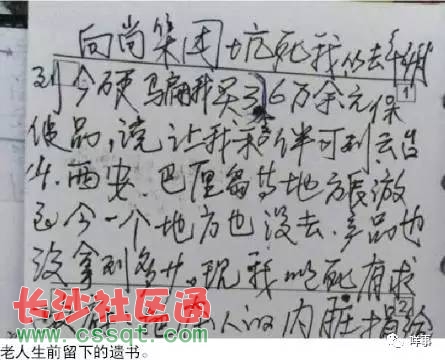 向尚集团坑死我从去年
1
到今硬骗我买了6万余元保
健品,说让我伴可到云台
山.西安.巴厘岛等地方旅游
至今一个地方也没去.产品也
没拿到多少.现我以死有求
2
本人的内脏捐给
长沙社区通
www.cssqt.com
咩事
老人生前留下的遗书。